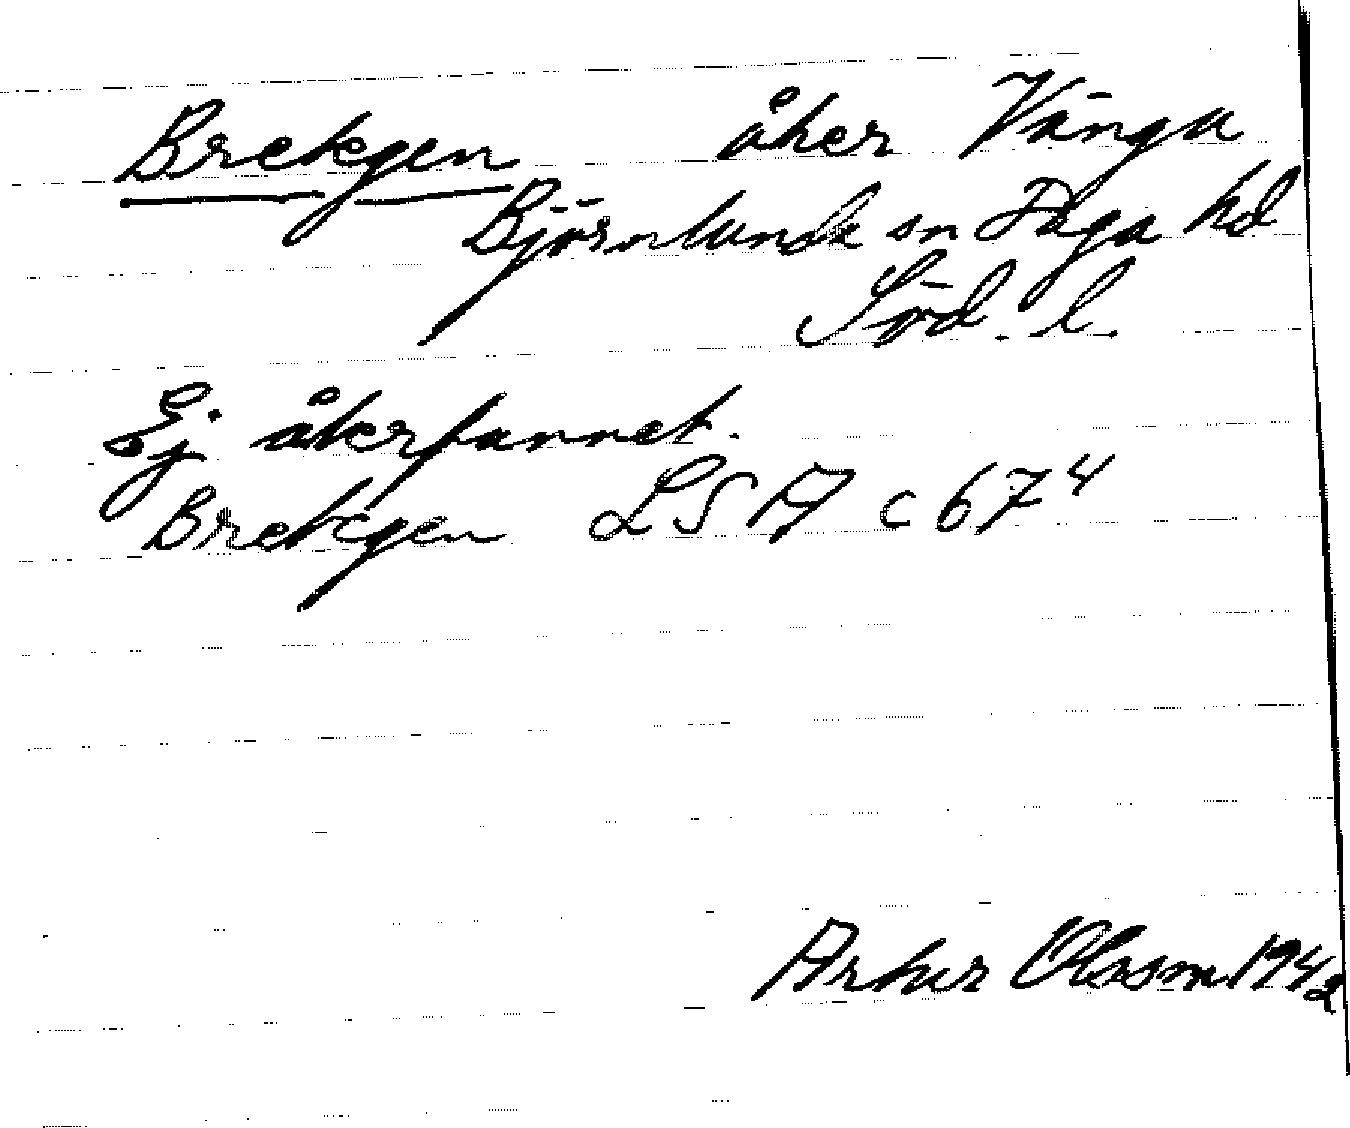 Brekgen åker Vänga
Björnlunda sn Daga hd
Söd. l.
Ej återfunnet.
Brekgen LSA C 67⁴
Artur Olsson 1942